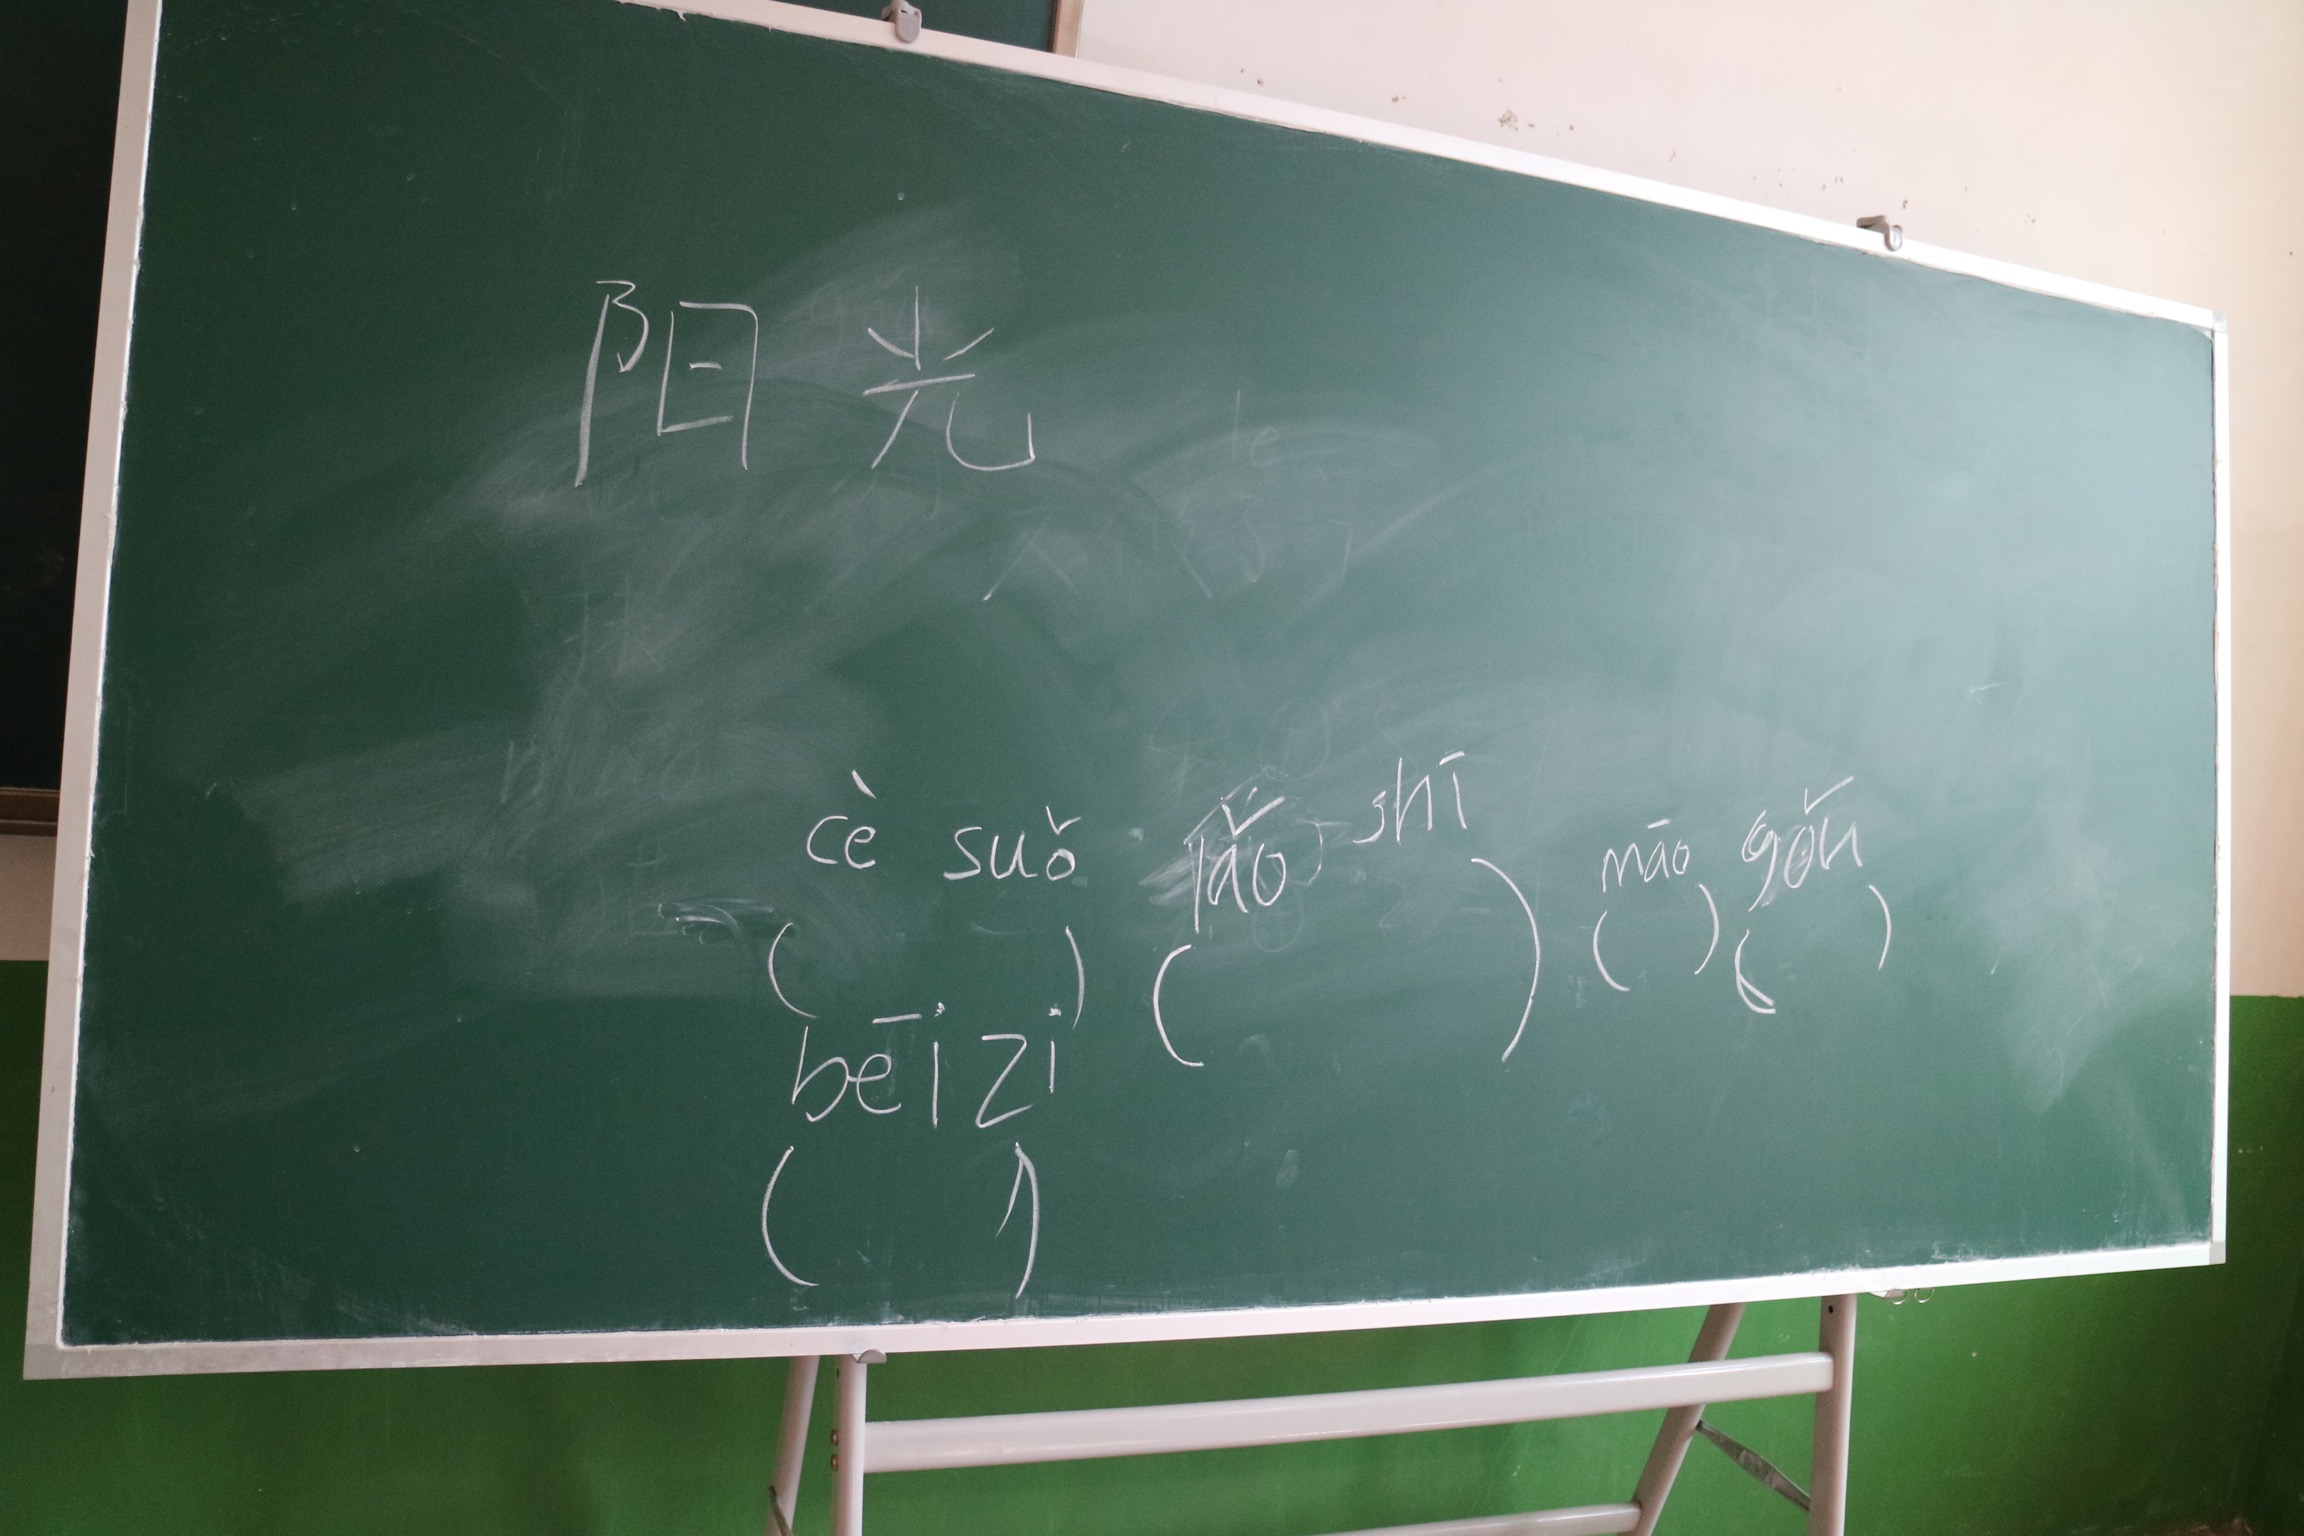 阳光
cè suǒ lǎo shī māo gǒu
( ) ( ) ( ) ( )
bēi zi
( )